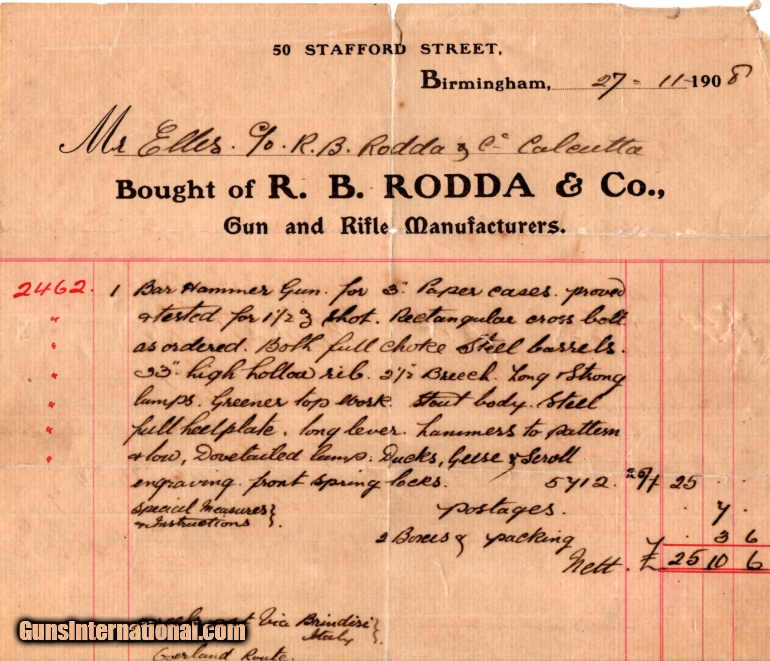 50 STAFFORD STREET,
Birmingham, 27 - 11 - 1908
Mr Elles. C/o. R. B. Rodda & Co Calcutta
Bought of R. B. RODDA & Co.,
Gun and Rifle Manufacturers.
2462. 1 Bar Hammer Gun. for 3" Paper cases. proved
" & tested for 1 1/2 Shot. Rectangular cross bolt
" as ordered. Both full choke Steel barrels.
" 33" high hollow rib. 2 1/2 Breech. Long & Strong
" lumps. Greener top work. Stout body. Steel
" full heelplate. long lever. hammers to pattern
" & low, Dovetailed lump. Ducks, Geese & Scroll
engraving. front spring locks. 5712. 25 . .
Special Measures } postages. . 7 .
& Instructions }
2 Boxes & packing . 3 6
Nett. £ 25 10 6
Via Brindisi }
Italy }
Overland Route.
GunsInternational.com